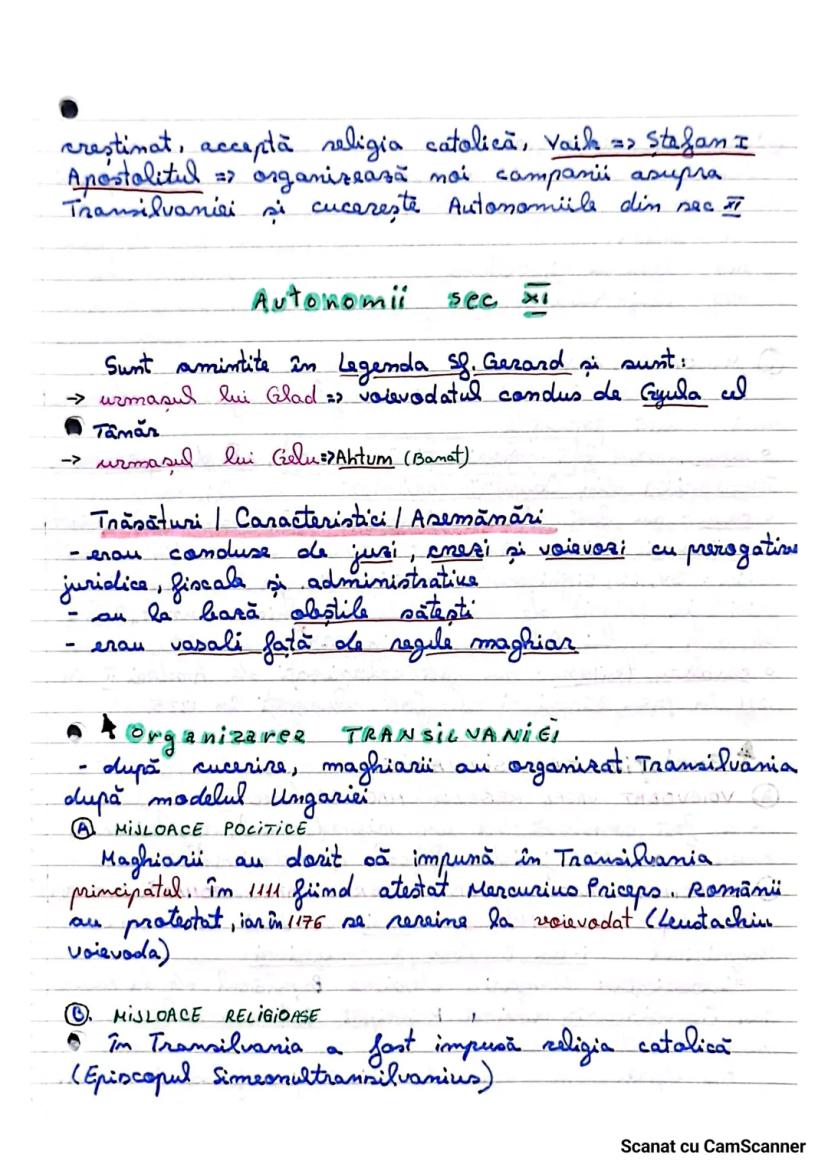 creștinat, acceptă religia catolică, Vaik => Ștefan I
Apostolitul => organizează noi campanii asupra
Transilvaniei și cucerește Autonomiile din sec XI
Autonomii sec XI
Sunt amintite în Legenda Sf. Gerard și sunt:
-> urmașul lui Glad => voievodatul condus de Gyula cel
Tânăr
-> urmașul lui Gelu => Ahtum (Banat)
Trăsături / Caracteristici / Asemănări
- erau conduse de juzi, cnezi și voievozi cu prerogative
juridice, fiscale și administrative
- au la bază obștile sătești
- erau vasali față de regele maghiar
Organizarea TRANSILVANIEI
- după cucerire, maghiarii au organizat Transilvania
după modelul Ungariei
A. MIJLOACE POLITICE
Maghiarii au dorit să impună în Transilvania
principatul. în 1111 fiind atestat Mercurius Priceps. Românii
au protestat, iar în 1176 se revine la voievodat (Leustachiu
voievoda)
B. MIJLOACE RELIGIOASE
în Transilvania a fost impusă religia catolică
(Episcopul Simeonultransilvanius)
Scanat cu CamScanner